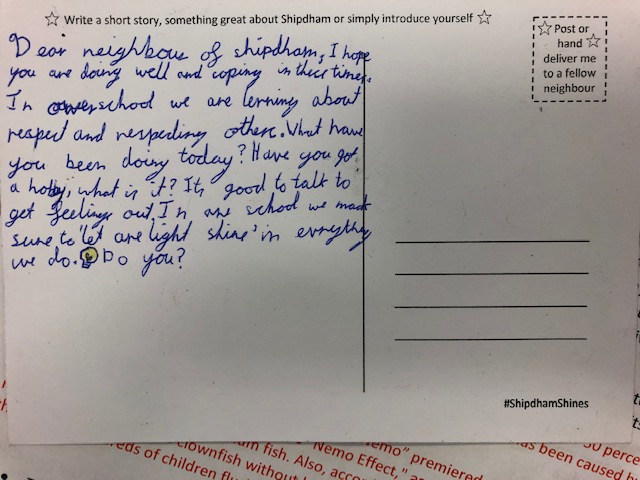 ☆ Write a short story, something great about Shipdham or simply introduce yourself ☆
☆ Post or
hand ☆
deliver me
to a fellow
neighbour
Dear neighbour of shipdham, I hope
you are doing well and coping in these times.
In school we are lerning about
respect and respecting others. What have
you been doing today? Have you got
a hobby, what is it? It's good to talk to
get feelings out. In are school we mack
sure to 'let are light shine' in evrything
we do. Do you?
#ShipdhamShines
50 perce
emo" premiered
"Nemo Effect,"
as been caused b
um fish. Also, acco
clownfish without
eds of children flu